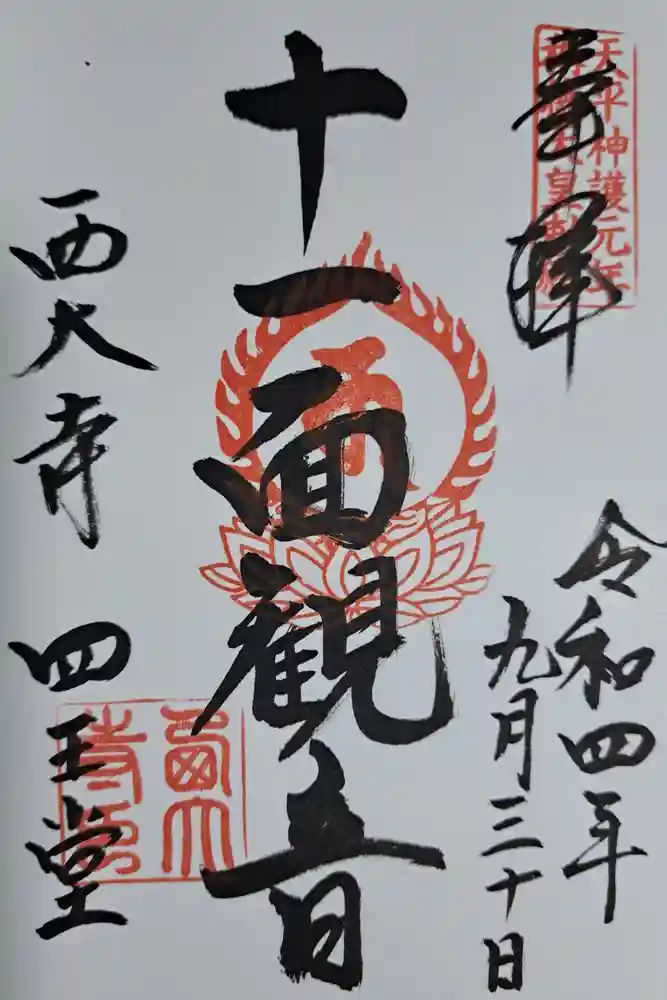 奉拝
天平神護元年
令和四年
九月三十日
十一面観音
西大寺 四王堂